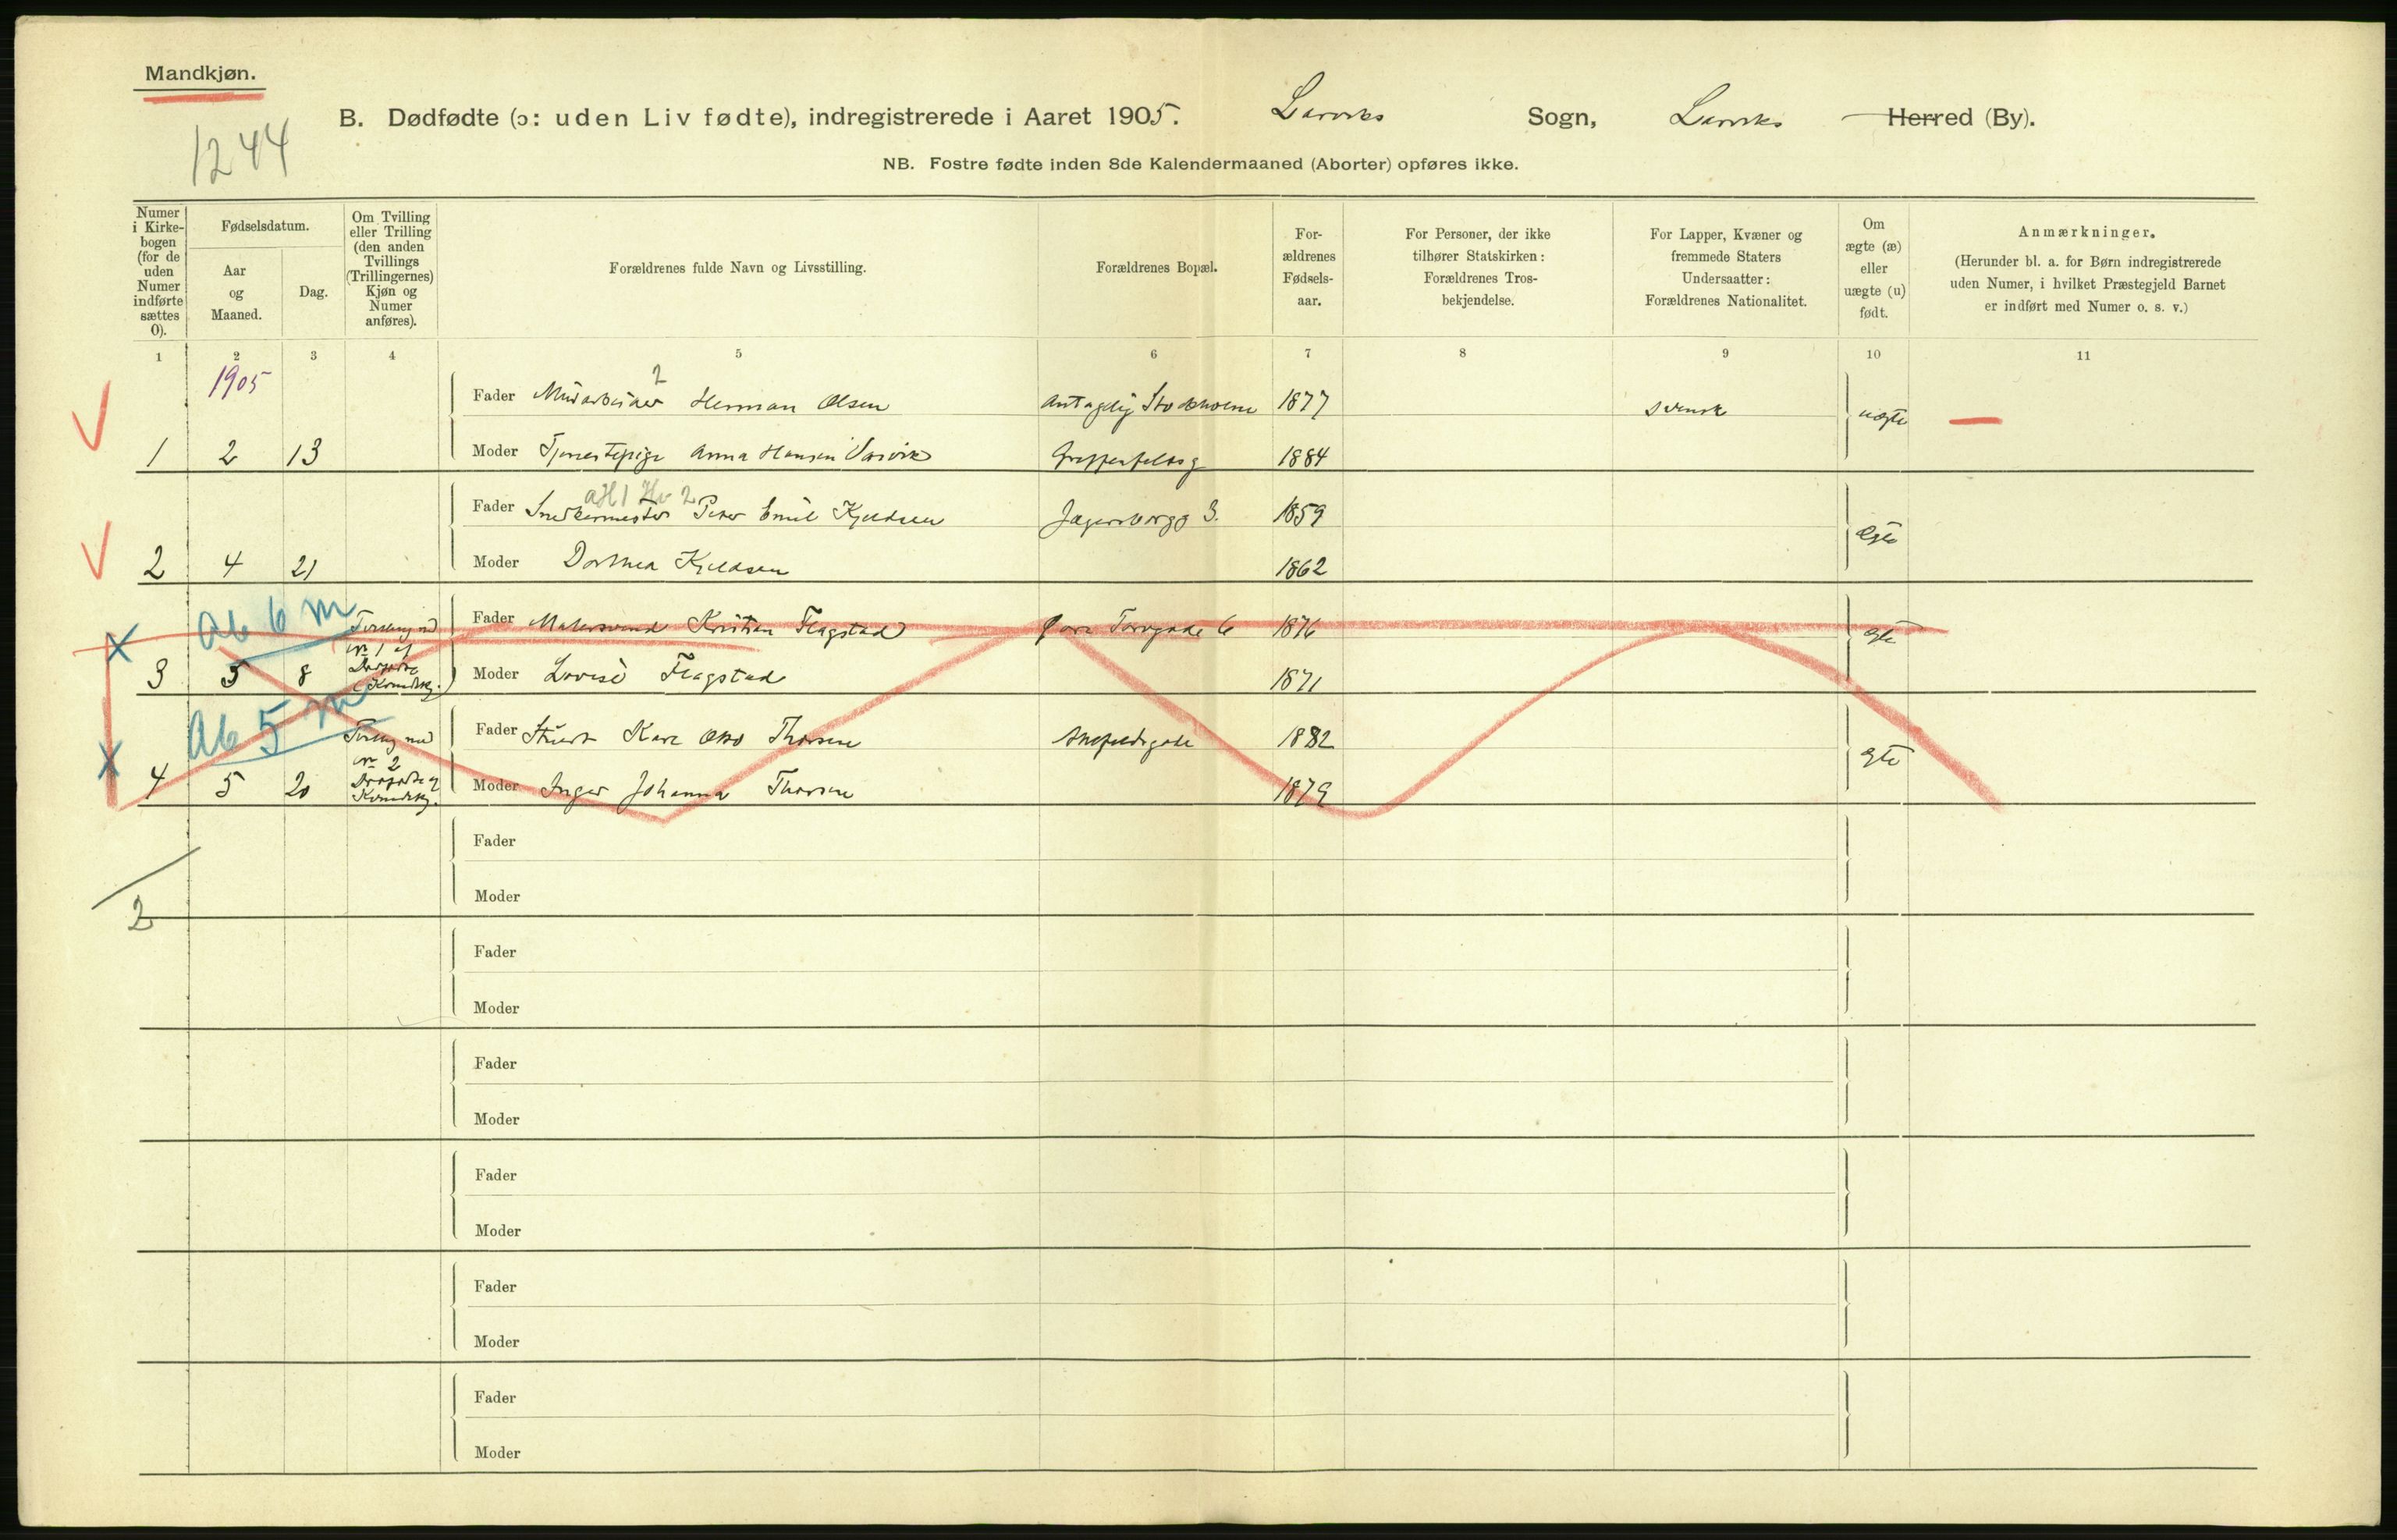 Mandkjøn.
1244
B. Dødfødte (ɔ: uden Liv fødte), indregistrerede i Aaret 1905. Larviks Sogn, Larviks Herred (By).
NB. Fostre fødte inden 8de Kalendermaaned (Aborter) opføres ikke.
Numer i Kirke-bogen (for de uden Numer indførte sættes 0).
Fødselsdatum.
Aar og Maaned.
Dag.
Om Tvilling eller Trilling (den anden Tvillings (Trillingernes) Kjøn og Numer anføres).
Forældrenes fulde Navn og Livsstilling.
Forældrenes Bopæl.
For-ældrenes Fødsels-aar.
For Personer, der ikke tilhører Statskirken: Forældrenes Tros-bekjendelse.
For Lapper, Kvæner og fremmede Staters Undersaatter: Forældrenes Nationalitet.
Om ægte (æ) eller uægte (u) født.
Anmærkninger.
(Herunder bl. a. for Børn indregistrerede uden Numer, i hvilket Præstegjeld Barnet er indført med Numer o. s. v.)
1 2 3 4 5 6 7 8 9 10 11
1905
2
Fader Murarbeider Herman Olsen Antagelig Stokholm 1877 svensk uægte
1 2 13 Moder Tjenestepige Anna Hansen Larvik 1884
2
Fader Snedkermester Peter Emil Kjeldsen 3. 1859 ægte
2 4 21 Moder Dorthea Kjeldsen 1862
Ab 6 m
Fader Malersvend Kristian Flagstad Torvgade 6 1876 ægte
No 1 af
3 5 8 Moder Lovise Flagstad 1871
Ab 5 m
Fader Karl Otto Thorsen 1882 ægte
No 2
4 5 20 Moder Inger Johanna Thorsen 1879
Fader
Moder
2
Fader
Moder
Fader
Moder
Fader
Moder
Fader
Moder
Fader
Moder